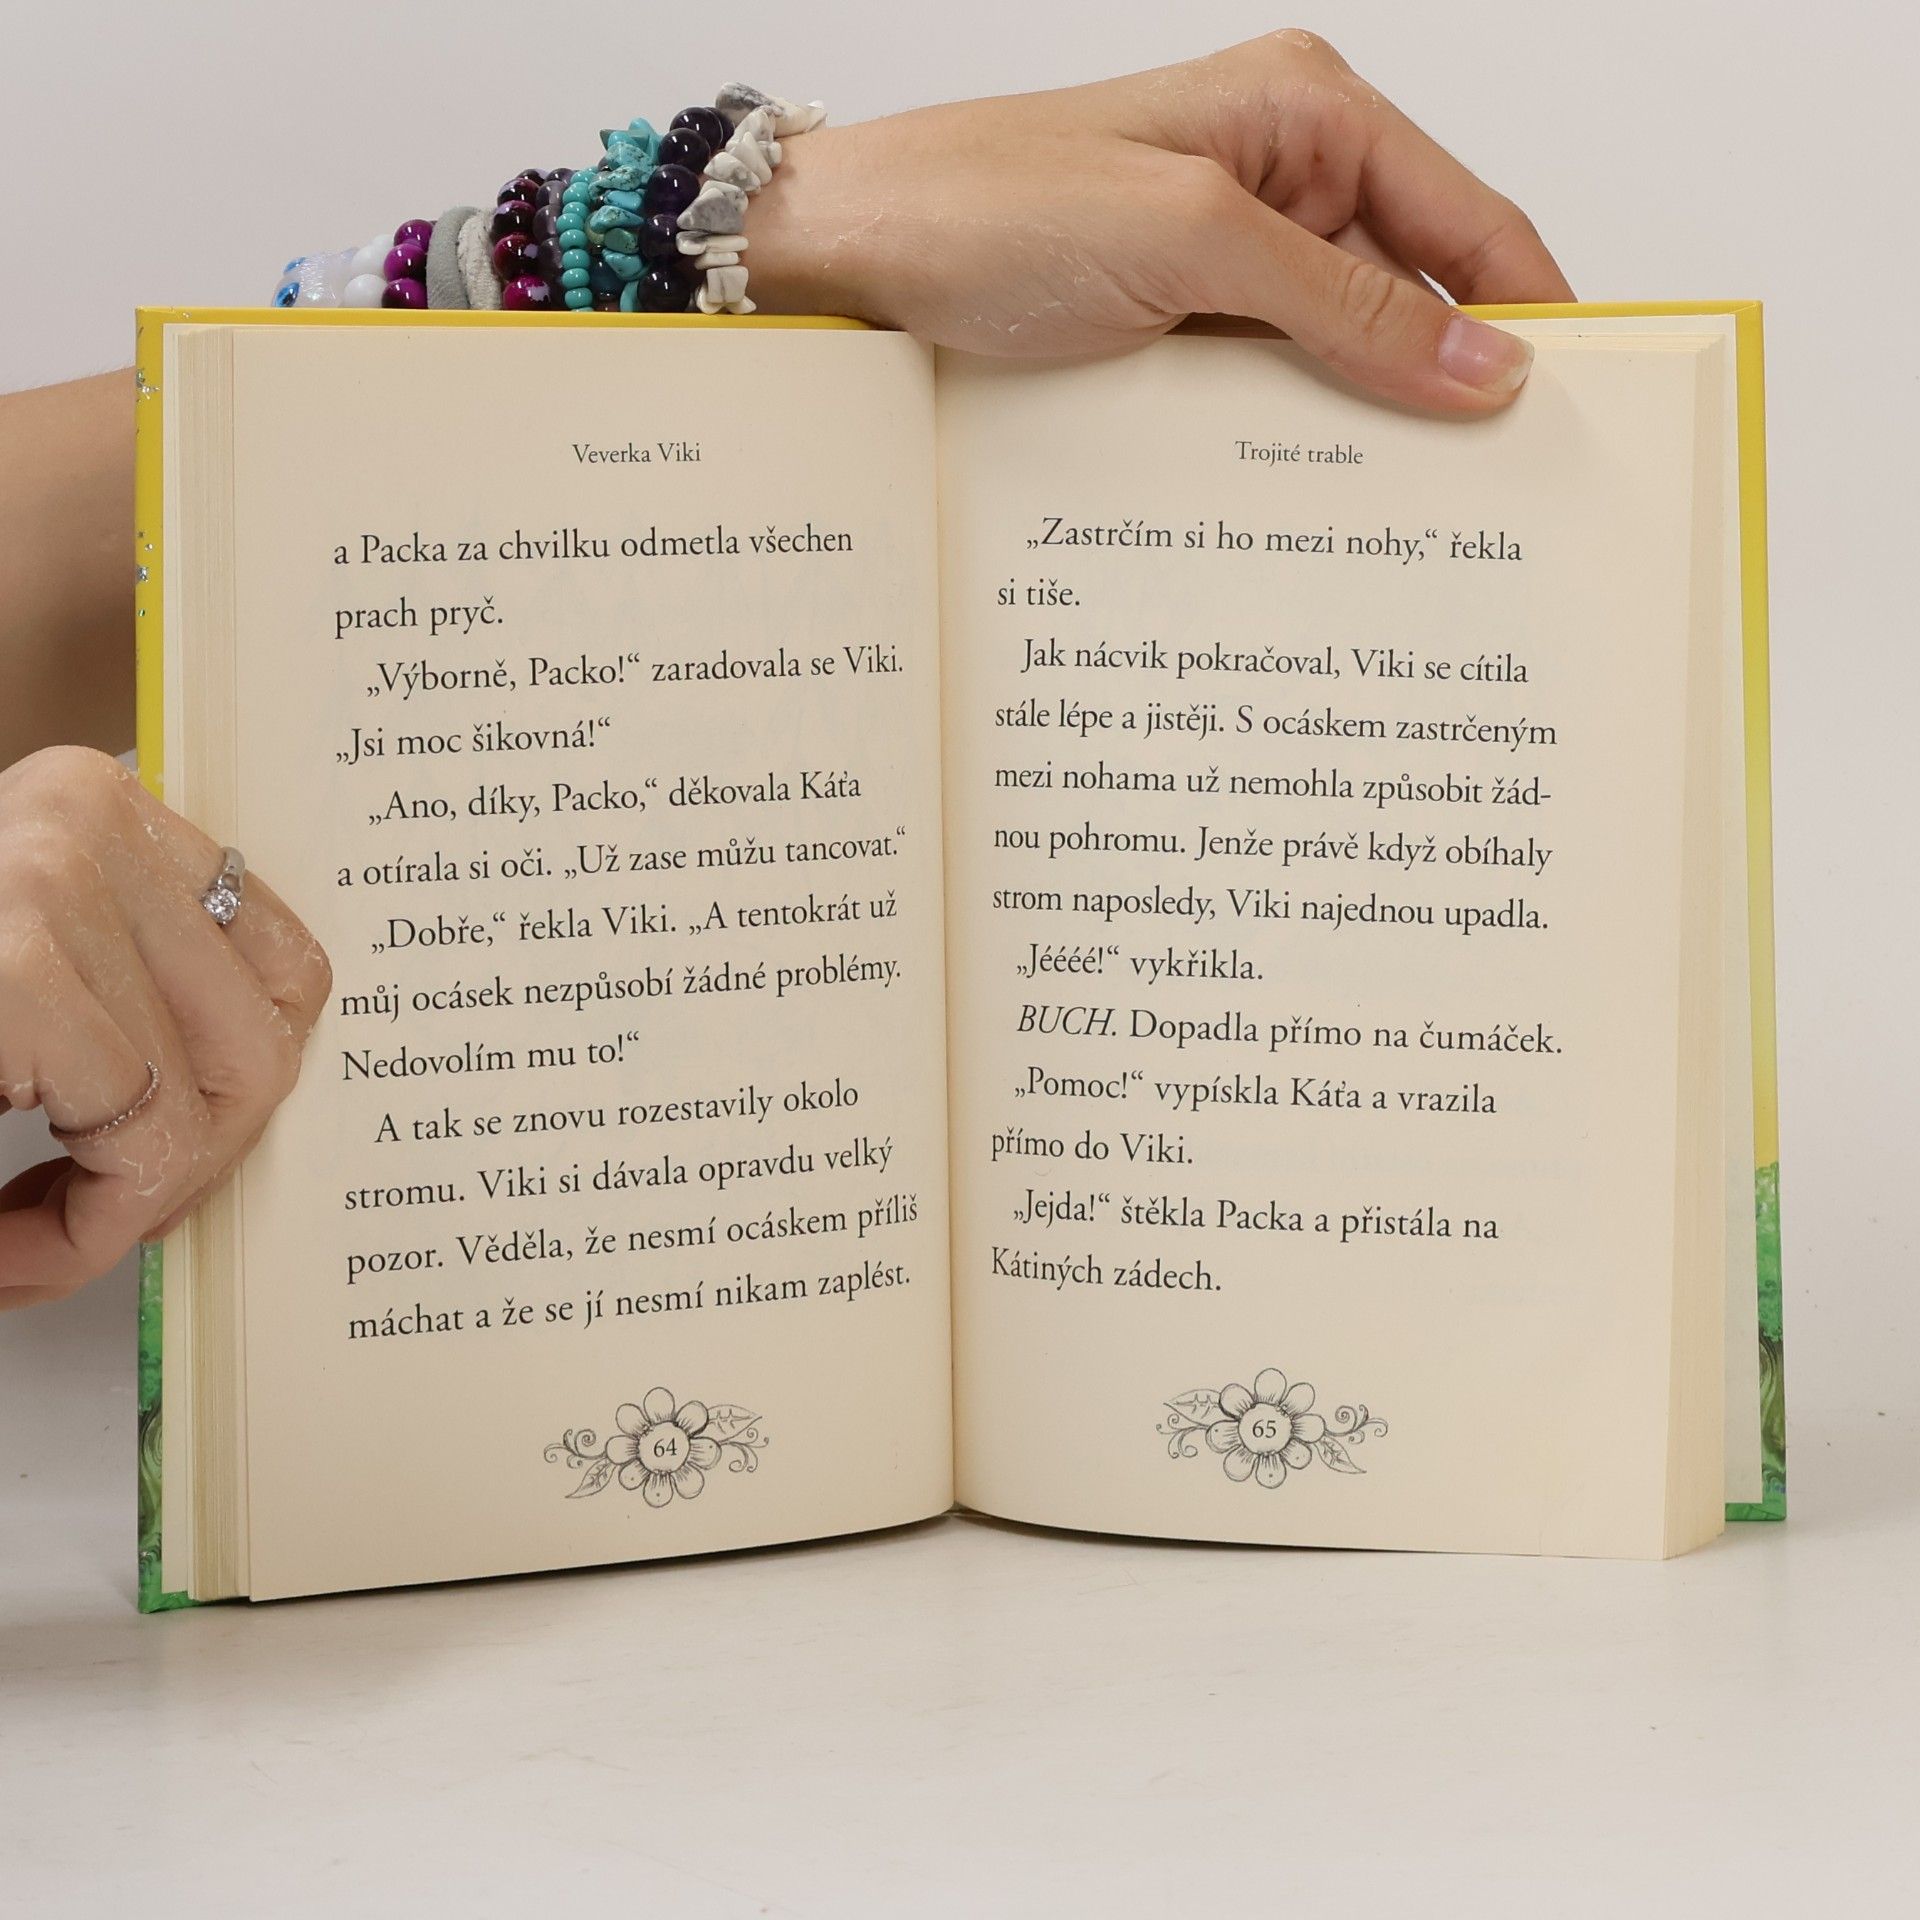 Veverka Viki
a Packa za chvilku odmetla všechen
prach pryč.
„Výborně, Packo!“ zaradovala se Viki.
„Jsi moc šikovná!“
„Ano, díky, Packo,“ děkovala Káťa
a otírala si oči. „Už zase můžu tancovat.“
„Dobře,“ řekla Viki. „A tentokrát už
můj ocásek nezpůsobí žádné problémy.
Nedovolím mu to!“
A tak se znovu rozestavily okolo
stromu. Viki si dávala opravdu velký
pozor. Věděla, že nesmí ocáskem příliš
máchat a že se jí nesmí nikam zaplést.
64
Trojité trable
„Zastrčím si ho mezi nohy,“ řekla
si tiše.
Jak nácvik pokračoval, Viki se cítila
stále lépe a jistěji. S ocáskem zastrčeným
mezi nohama už nemohla způsobit žád-
nou pohromu. Jenže právě když obíhaly
strom naposledy, Viki najednou upadla.
„Jéééé!“ vykřikla.
BUCH. Dopadla přímo na čumáček.
„Pomoc!“ vypískla Káťa a vrazila
přímo do Viki.
„Jejda!“ štěkla Packa a přistála na
Kátiných zádech.
65